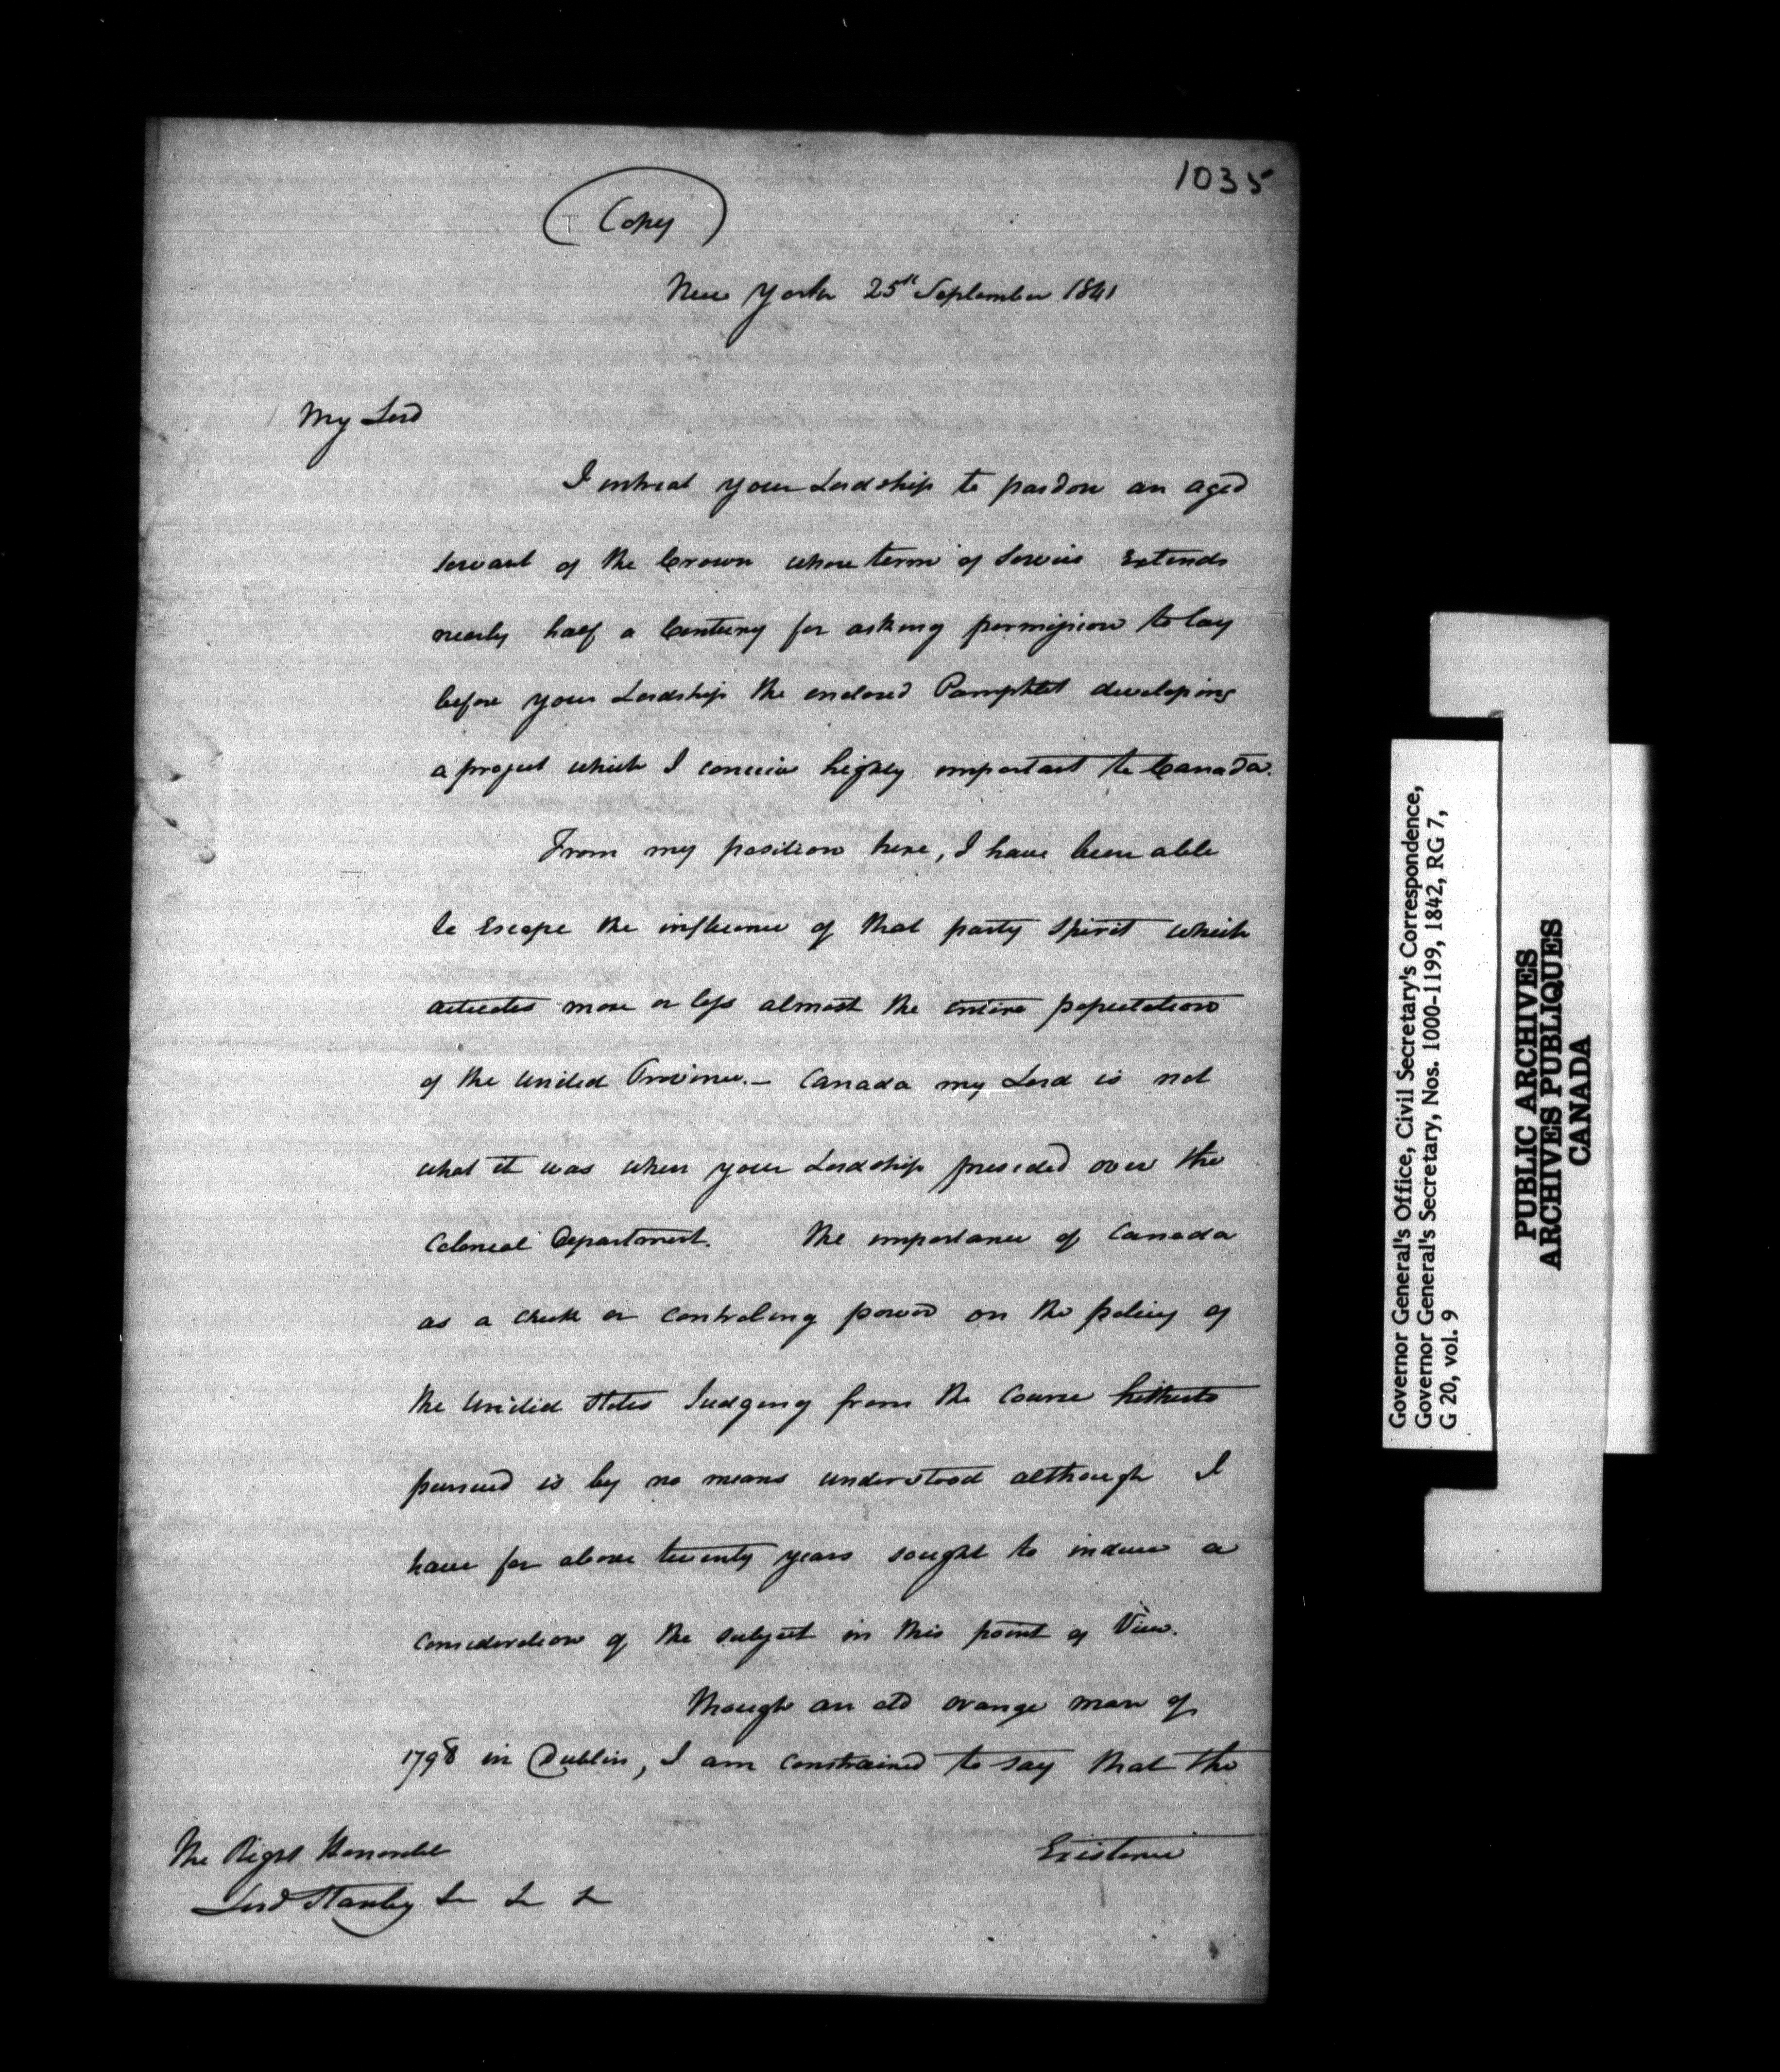 1035
(Copy)
New York 25th September 1841
My Lord
I intreat your Lordship to pardon an aged
servant of the Crown whose term of Service Extends
nearly half a Century for asking permission to lay
before your Lordship the enclosed Pamphlet developing
a project which I conceive highly important to Canada.
From my position here, I have been able
to Escape the influence of that party spirit which
actuates more or less almost the entire population
of the United Province. – Canada my Lord is not
what it was when your Lordship presided over the
Colonial Department. The importance of Canada
as a check or controling power on the policy of
the United States Judging from the Course hitherto
pursued is by no means understood although I
have for above twenty years sought to induce a
consideration of the subject in this point of View.
Though an old orange man of
1798 in Dublin, I am constrained to say that the
Existence
The Right Honorable
Lord Stanley &c &c &c
Governor General's Office, Civil Secretary's Correspondence,
Governor General's Secretary, Nos. 1000-1199, 1842, RG 7,
G 20, vol. 9
PUBLIC ARCHIVES
ARCHIVES PUBLIQUES
CANADA